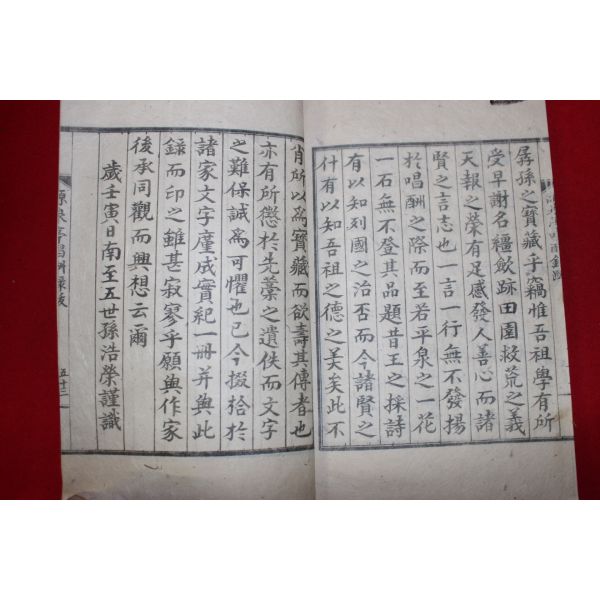 孱孫之寶藏乎竊惟吾祖學有所
受早謝名韁歛跡田園救荒之義
天報之榮有足感發人善心而諸
賢之言志也一言一行無不發揚
於唱酬之際而至若平泉之一花
一石無不登其品題昔王之採詩
有以知列國之治否而今諸賢之
什有以知吾祖之德之美矣此不
肖所以爲寶藏而欲壽其傳者也
亦有所懲於先藁之遺佚而文字
之難保誠爲可懼也已今掇拾於
諸家文字廑成實紀一冊并與此
錄而印之雖甚寂寥乎願與作家
後承同觀而興想云爾
歲壬寅日南至五世孫浩榮謹識
源泉亭唱酬錄跋
五十二